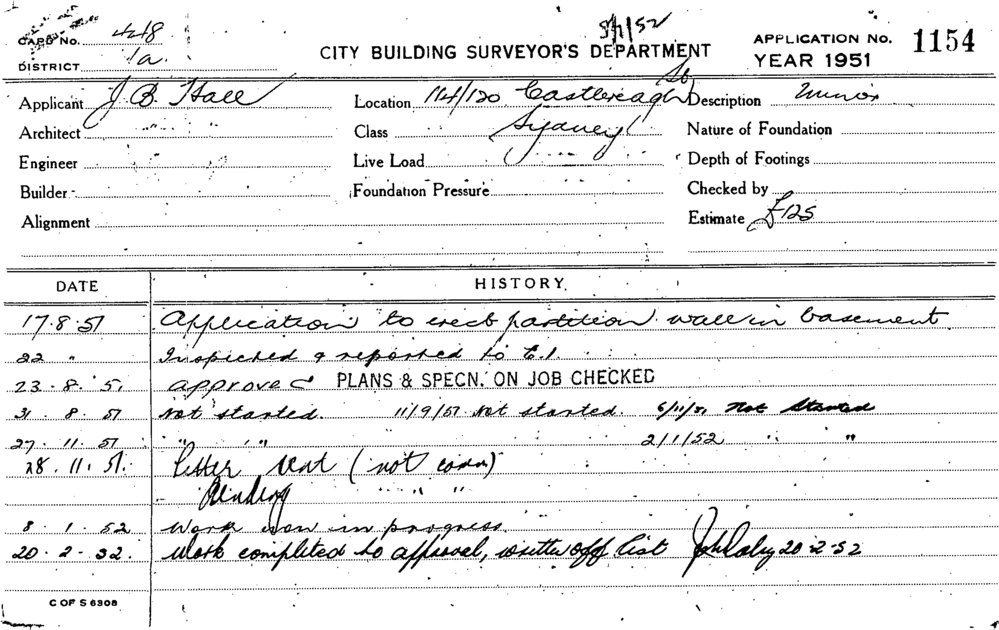 5/1/52
CARD No. 448
CITY BUILDING SURVEYOR'S DEPARTMENT
APPLICATION No. 1154
DISTRICT 1a.
YEAR 1951
Applicant J. B. Hall
Location 114/120 Castlereagh St.
Description Minor
Architect " "
Class Sydney
Nature of Foundation
Engineer " "
Live Load
Depth of Footings
Builder
Foundation Pressure
Checked by
Alignment
Estimate £125
DATE HISTORY
17.8.51 Application to erect partition wall in basement
22 " Inspected & reported to C.I.
23.8.51 Approved PLANS & SPECN. ON JOB CHECKED
31.8.51 Not started. 11/9/51 Not started. 6/11/51 Not Started
27.11.51 " " 2/1/52 " "
28.11.51. Letter sent (not com)
" "
8.1.52 Work now in progress.
20.2.52. Work completed to approval, written off list 20-2-52
C OF S 6308